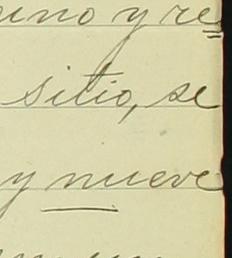 uno y re
sitio, se
y nueve